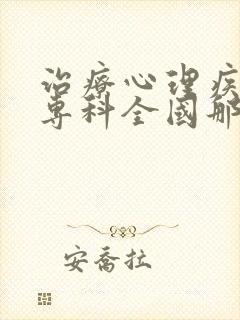 治療心理疾
專科全國哪
安喬拉